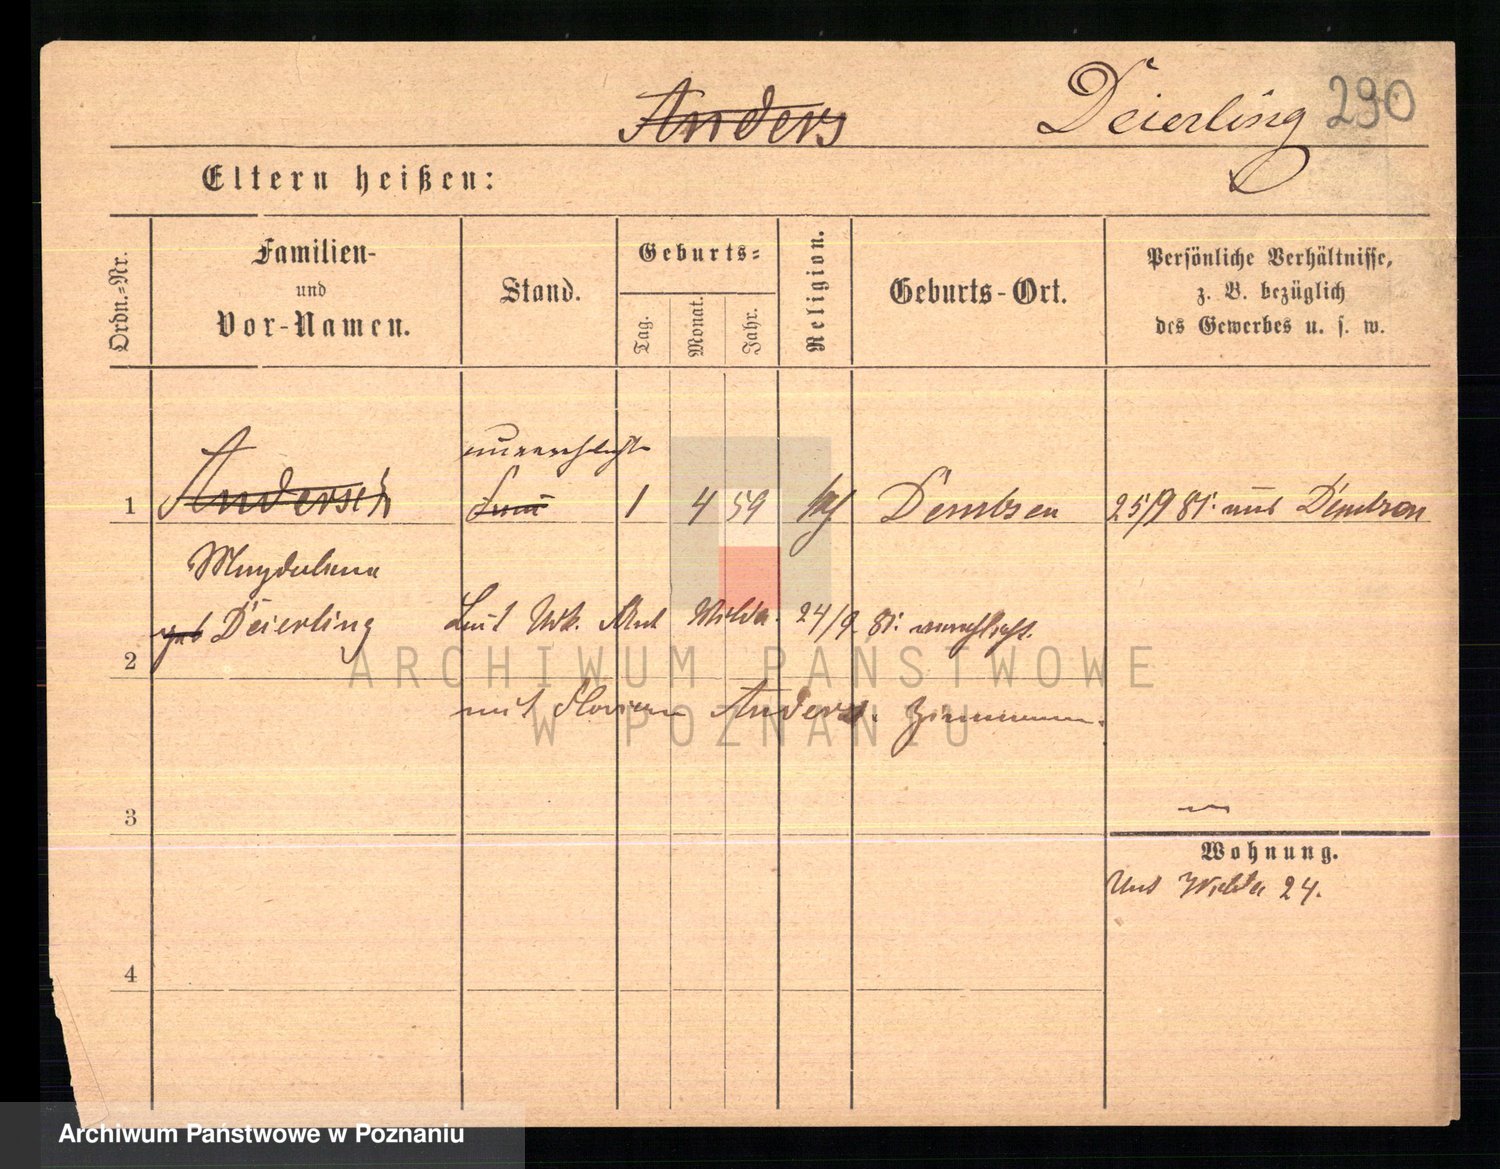 Anders Deierling 290
Eltern heißen:
Ordn.-Nr.
Familien-
und
Vor-Namen.
Stand.
Geburts-
Tag.
Monat.
Jahr.
Religion.
Geburts-Ort.
Persönliche Verhältnisse,
z. B. bezüglich
des Gewerbes u. s. w.
unverehlicht
1 Andersch 1 4 59 kath Dembsen 25/9 81. aus Dembsen
Magdalena
geb Deierling Laut Amt Wilda. 24/9 81. verehlicht.
2
mit Florian Anders. Zimmerm.
3
Wohnung.
Unt Wilda 24.
4
ARCHIWUM PAŃSTWOWE
W POZNANIU
Archiwum Państwowe w Poznaniu